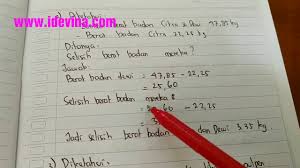 www.idevina.com
Berat badan Citra & Dewi 47,85 kg
Ditanya:
Selisih berat badan mereka?
Jawab:
Berat badan dewi = 47,85 - 22,25
= 25,60
Selisih berat badan mereka :
= 60 - 22,25
= 3
Jadi selisih berat badan dan Dewi 3.35 kg
2) Diketahui: